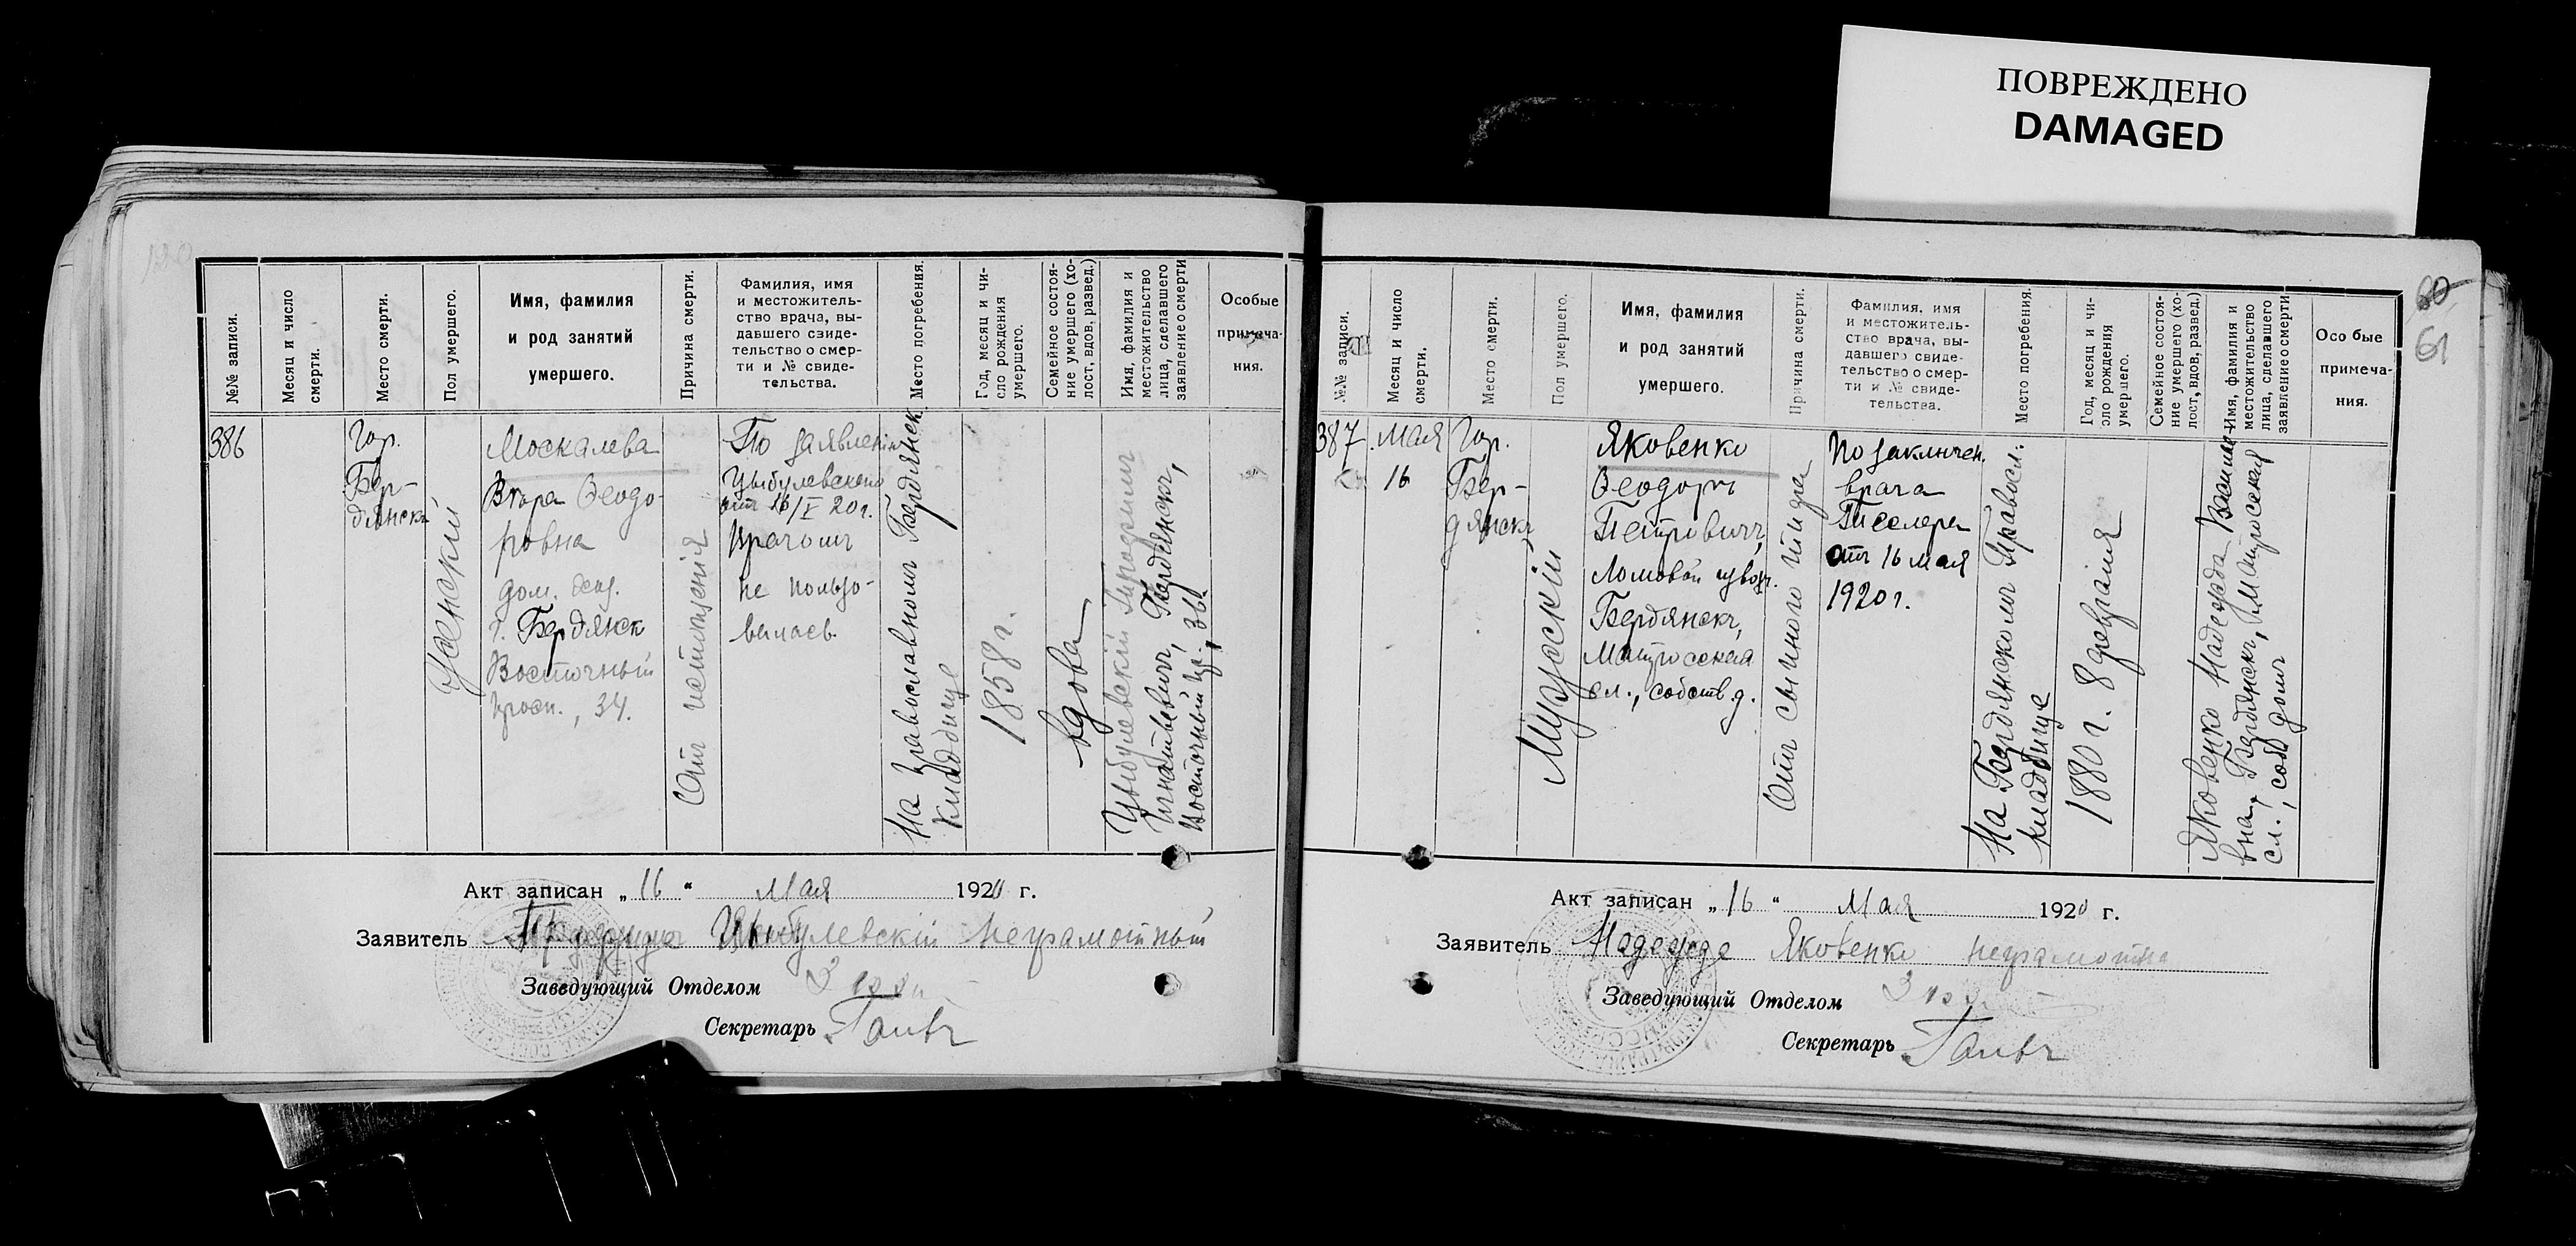 ПОВРЕЖДЕНО
DAMAGED
№№ записи.
Месяц и число
смерти.
Место смерти.
Пол умершего.
Имя, фамилия
и род занятий
умершего.
Причина смерти.
Фамилия, имя
и местожитель-
ство врача, вы-
давшего свиде-
тельство о смер-
ти и № свиде-
тельства.
Место погребения.
Год, месяц и чи-
сло рождения
умершего.
Семейное состоя-
ние умершего (хо-
лост, вдов, развед.)
Имя, фамилия и
местожительство
лица, сделавшего
заявление о смерти
Особые
примеча-
ния.
386
Гор.
Бер-
дянскъ
Женскій
Москалева
Вѣра Ѳеодо-
ровна
дом. хоз.
г. Бердянск
Восточный
просп., 34.
Отъ истощенія
По заявленію
Цыбулевскаго
отъ 16/V 20 г.
Врачомъ
не пользо-
валась.
На православномъ Бердянск.
кладбище
1858 г.
вдова
Цыбулевскій
Игнатьевичъ, Бердянскъ,
Восточный пр., 34.
Акт записан „16“ Мая 1920 г.
Заявитель Цыбулевскій неграмотный
Заведующий Отделом
Секретарь
№№ записи.
Месяц и число
смерти.
Место смерти.
Пол умершего.
Имя, фамилия
и род занятий
умершего.
Причина смерти.
Фамилия, имя
и местожитель-
ство врача, вы-
давшего свиде-
тельство о смер-
ти и № свиде-
тельства.
Место погребения.
Год, месяц и чи-
сло рождения
умершего.
Семейное состоя-
ние умершего (хо-
лост, вдов, развед.)
Имя, фамилия и
местожительство
лица, сделавшего
заявление о смерти
Осо бые
примеча-
ния.
60
61
387
Мая
16
Гор.
Бер-
дянскъ
Мужскій
Яковенко
Ѳеодоръ
Петровичъ,
Ломовой извозч.
Бердянскъ,
Матросская
сл., собств. д.
Отъ сыпного тифа
По заключен.
врача
Гиселера
отъ 16 мая
1920 г.
На Бердянскомъ Правосл.
кладбище
1880 г. 8 февраля
Яковенко Надежда Василье-
вна, Бердянскъ, Матросская
сл., соб домъ
Акт записан „16“ Мая 1920 г.
Заявитель Надежда Яковенко неграмотна
Заведующий Отделом
Секретарь